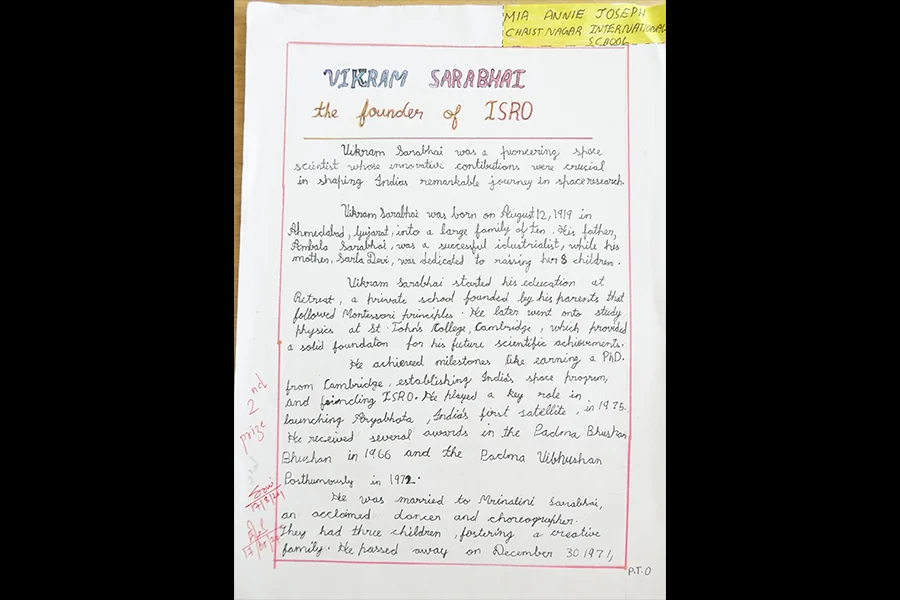 MIA ANNIE JOSEPH
CHRIST NAGAR INTERNATIONAL
SCHOOL
VIKRAM SARABHAI
the founder of ISRO
Vikram Sarabhai was a pioneering space
scientist whose innovative contibutions were crucial
in shaping Indias remarkable journey in space research.
Vikram Sarabhai was born on August 12, 1919 in
Ahmedabad, Gujarat, into a large family of ten. His father,
Ambala Sarabhai, was a successful idustrialist, while his
mother, Sarla Devi, was dedicated to raising her 8 children.
Vikram Sarabhai started his education at
Retreat, a private school founded by his parents that
followed Montessori principles. He later went onto study
physics at St. John's College, Cambridge, which provided
a solid foundaton for his future scientific achievements.
He achieved milestones like earning a PhD.
from Cambridge, establishing India's space program,
and founding ISRO. He played a key role in
launching Aryabhata, India's first satellite, in 1975.
He received several awards in the Padma Bhushan
Bhushan in 1966 and the Padma Vibhushan
Posthumously in 1972.
He was married to Mrinalini Sarabhai,
an acclaimed dancer and choreographer.
They had three children, fostering a creative
family. He passed away on December 30 1971,
P.T.O
2nd
prize